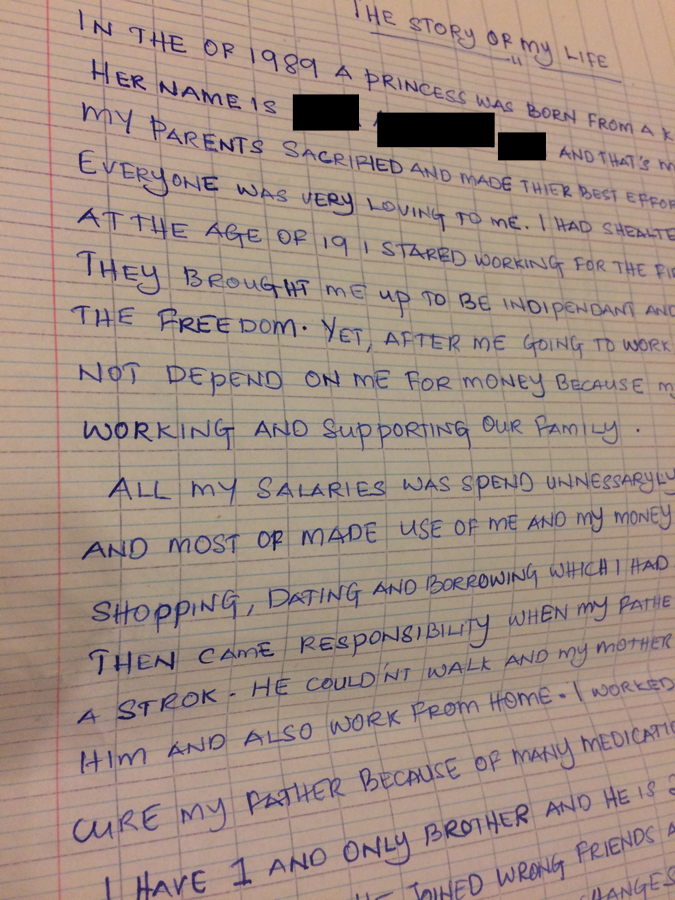 THE STORY OF MY LIFE
IN THE OF 1989 A PRINCESS WAS BORN FROM A K
HER NAME IS AND THAT'S M
MY PARENTS SACRIFIED AND MADE THIER BEST EFFOR
EVERYONE WAS VERY LOVING TO ME. I HAD SHEALTE
AT THE AGE OF 19 I STARED WORKING FOR THE FIR
THEY BROUGHT ME UP TO BE INDIPENDANT AND
THE FREEDOM. YET, AFTER ME GOING TO WORK
NOT DEPEND ON ME FOR MONEY BECAUSE M
WORKING AND SUPPORTING OUR FAMILY.
ALL MY SALARIES WAS SPEND UNNESSARYLY
AND MOST OF MADE USE OF ME AND MY MONEY
SHOPPING, DATING AND BORROWING WHICH I HAD
THEN CAME RESPONSIBILITY WHEN MY FATHE
A STROK. HE COULD'NT WALK AND MY MOTHER
HIM AND ALSO WORK FROM HOME. I WORKED
CURE MY FATHER BECAUSE OF MANY MEDICATIO
I HAVE 1 AND ONLY BROTHER AND HE IS 2
JOINED WRONG FRIENDS A
CHANGES